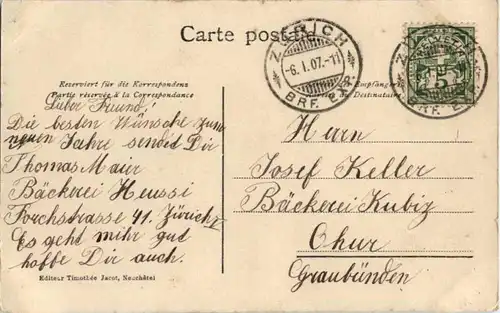 Carte postale
ZÜRICH
-6.I.07.-11
BRF. EXP.
ZÜRICH
BRF. EXP.
5
Reserviert für die Korrespondenz
Partie réservée à la Correspondance
Luber Freund!
Die besten Wünsche zum
neuen Jahre sendet Dir
Thomas Maier
Bäckerei Heussi
Forchstrasse 41. Zürich V
Es geht mihr gut
hoffe Dir auch.
Editeur Timothée Jacot, Neuchâtel
Herrn
Josef Keller
Bäckerei Kubiz
Chur
Graubünden